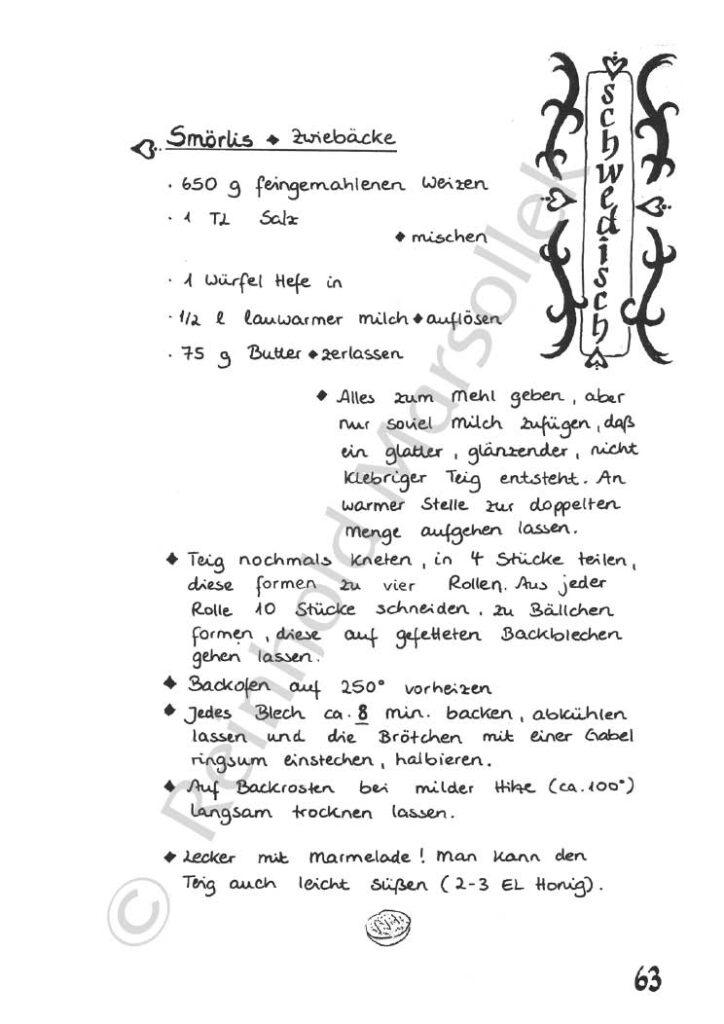 Smörlis ◆ Zwiebäcke
· 650 g feingemahlenen Weizen
· 1 TL Salz
◆ mischen
· 1 Würfel Hefe in
· 1/2 l lauwarmer Milch ◆ auflösen
· 75 g Butter ◆ zerlassen
◆ Alles zum Mehl geben, aber
nur soviel Milch zufügen, daß
ein glatter, glänzender, nicht
klebriger Teig entsteht. An
warmer Stelle zur doppelten
Menge aufgehen lassen.
◆ Teig nochmals kneten, in 4 Stücke teilen,
diese formen zu vier Rollen. Aus jeder
Rolle 10 Stücke schneiden, zu Bällchen
formen, diese auf gefetteten Backblechen
gehen lassen.
◆ Backofen auf 250° vorheizen
◆ Jedes Blech ca. 8 min. backen, abkühlen
lassen und die Brötchen mit einer Gabel
ringsum einstechen, halbieren.
◆ Auf Backrosten bei milder Hitze (ca. 100°)
langsam trocknen lassen.
◆ Lecker mit Marmelade! Man kann den
Teig auch leicht süßen (2-3 EL Honig).
schwedisch
© Reinhold Marsollek
63